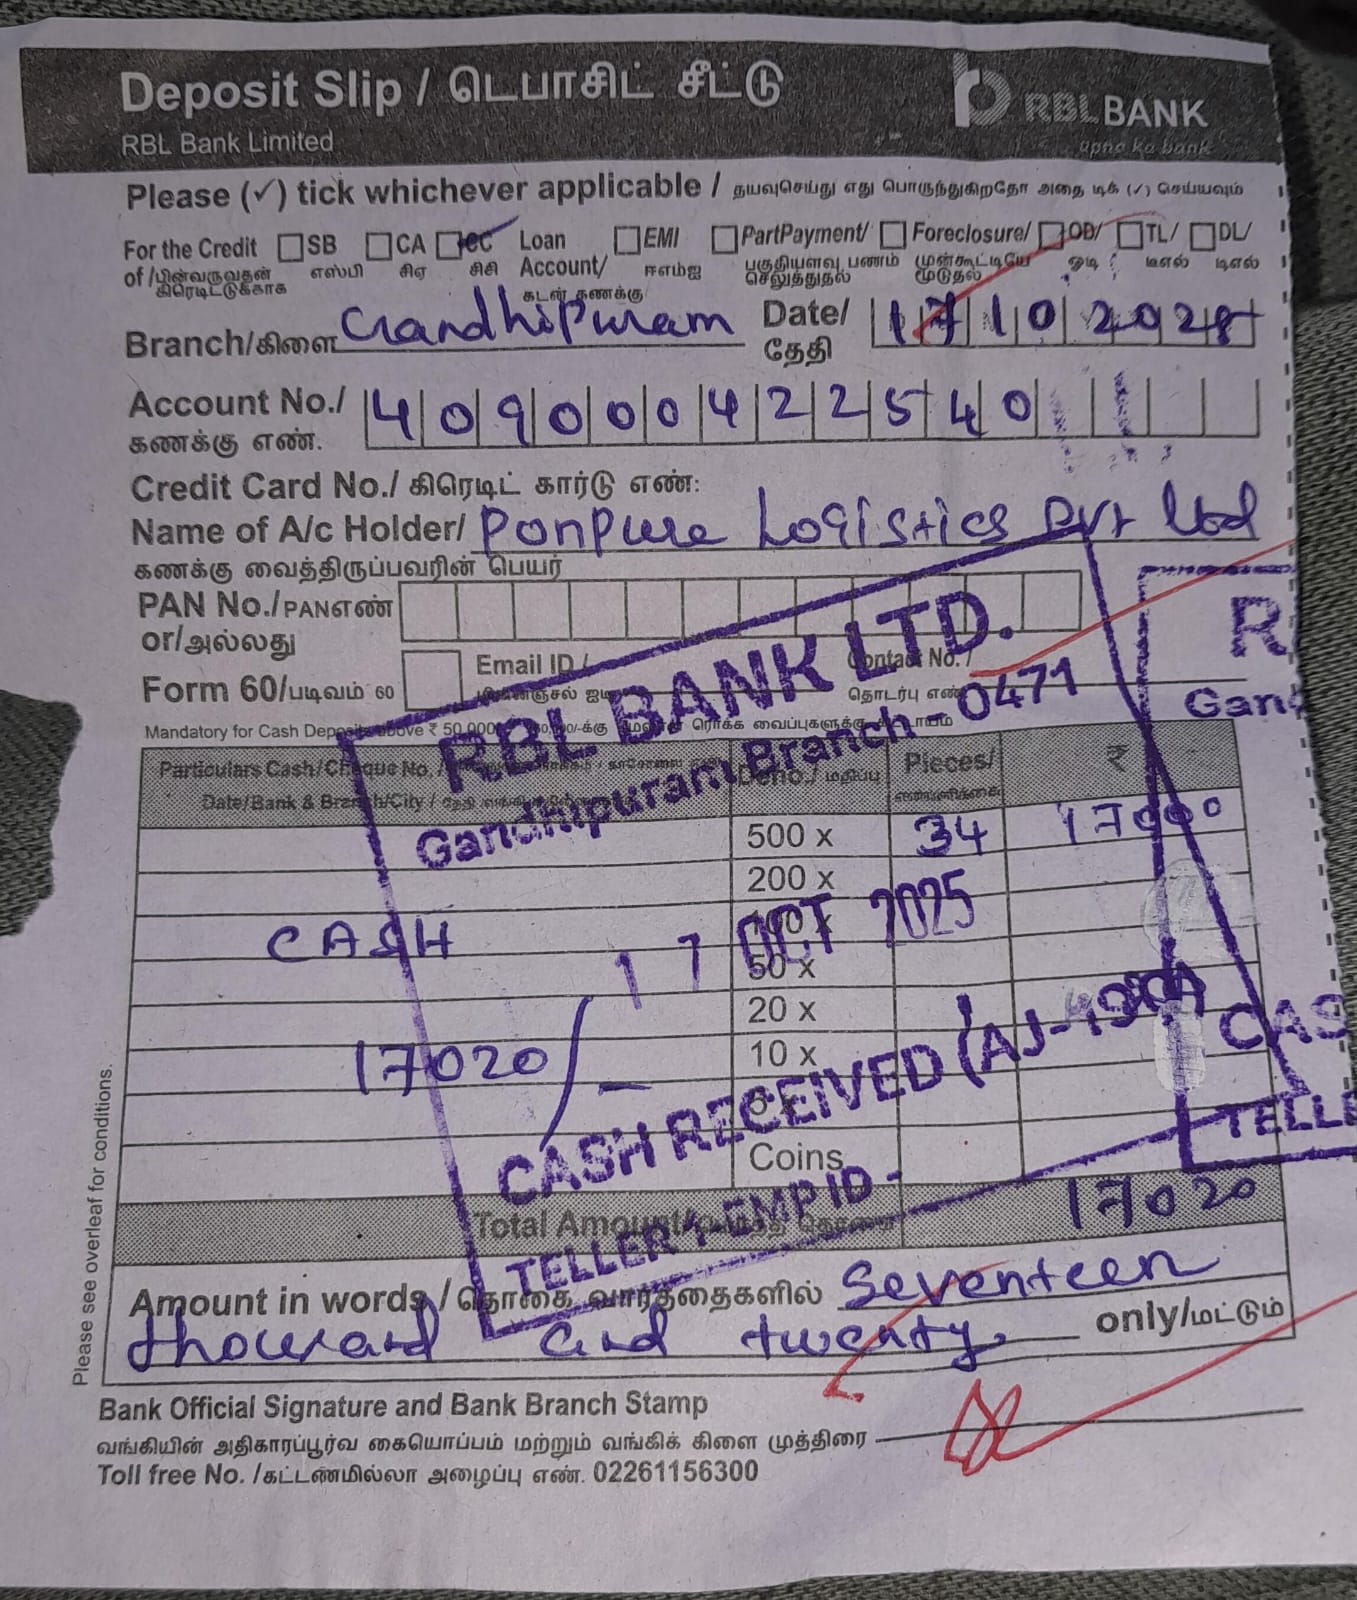 Deposit Slip / டெபாசிட் சீட்டு
RBL Bank Limited
RBLBANK
apno ka bank
Please (✓) tick whichever applicable / தயவுசெய்து எது பொருந்துகிறதோ அதை டிக் (✓) செய்யவும்
For the Credit SB CA CC Loan EMI PartPayment/ Foreclosure/ OD/ TL/ DL/
of /பின்வருவதன் கிரெடிட்டுக்காக எஸ்பி சிஏ சிசி Account/ கடன் கணக்கு ஈஎம்ஐ பகுதியளவு பணம் செலுத்துதல் முன்கூட்டியே முடுதல் ஓடி டிஎல் டிஎல்
Branch/கிளை Gandhipuram Date/ தேதி 17102025
Account No./ 409000422540
கணக்கு எண்.
Credit Card No./ கிரெடிட் கார்டு எண்:
Name of A/c Holder/ Ponpure Logistics Pvt Ltd
கணக்கு வைத்திருப்பவரின் பெயர்
PAN No./PANஎண்
or/அல்லது
Form 60/படிவம் 60
Email ID /
Contact No. /
தொடர்பு எண்
Mandatory for Cash Deposits above ₹ 50,000
RBL BANK LTD.
Gandhipuram Branch - 0471
Particulars Cash/Cheque No. /
Date/Bank & Branch/City /
Deno./ மதிப்பு
Pieces/
₹
500 x 34 17000
200 x
CASH
17 OCT 2025
50 x
20 x
17020/-
10 x
CASH RECEIVED
Coins
TELLER'S EMP ID -
Total Amount/ 17020
Amount in words / தொகை வார்த்தைகளில் Seventeen
thousand and twenty only/மட்டும்
Bank Official Signature and Bank Branch Stamp
வங்கியின் அதிகாரப்பூர்வ கையொப்பம் மற்றும் வங்கிக் கிளை முத்திரை
Toll free No. /கட்டணமில்லா அழைப்பு எண். 02261156300
Please see overleaf for conditions.